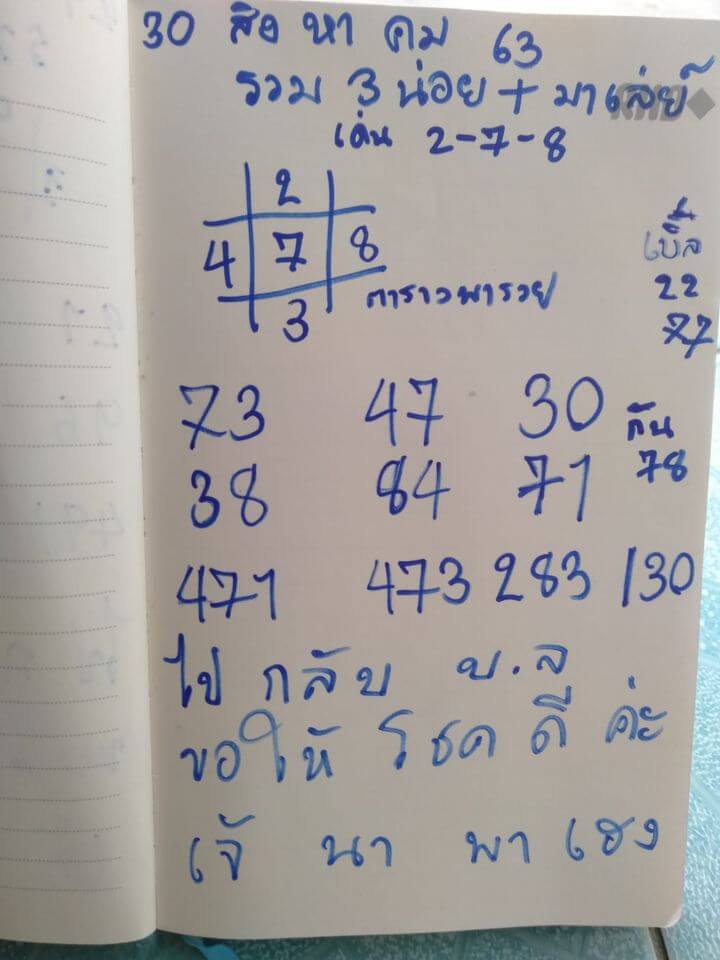 30 สิง หา คม 63
รวม 3 น่อย + มาเล่ย์
เด่น 2-7-8
2
4 7 8
3
ตาราวพารวย
เบิ้ล
22
77
73 47 30
38 84 71
กัน
78
471 473 283 130
ไป กลับ บ.ล
ขอให้ โชค ดี ค่ะ
เจ้ นา พา เฮง